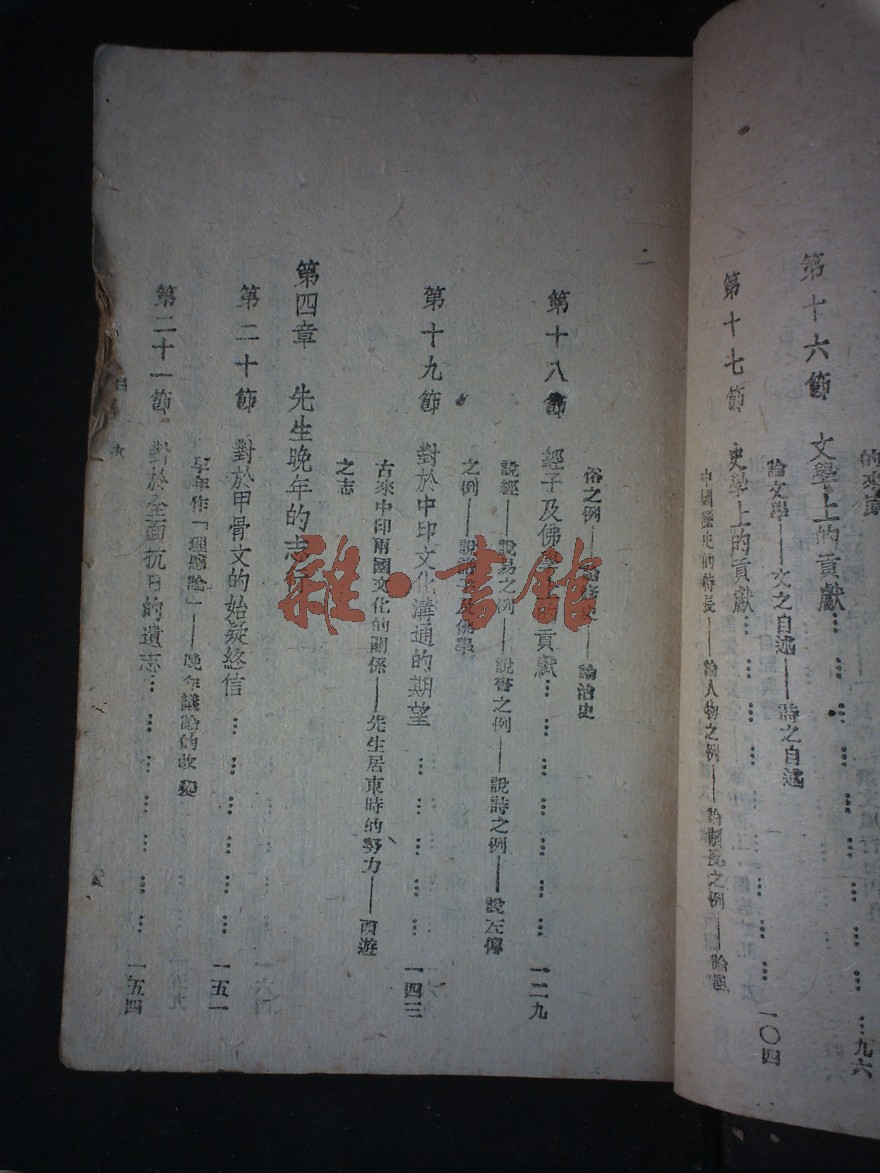 的來源
第十六節 文學上的貢獻……………九六
論文學——文之自述——詩之自述
第十七節 史學上的貢獻……………一〇四
中國歷史的特長——論人物之例——論制度之例——論
二
俗之例——論——論治史
第十八節 經子及佛學上的貢獻……………一二九
說經——說易之例——說書之例——說詩之例——說左傳
之例——說諸子及佛學
第十九節 對於中印文化溝通的期望……………一四三
古來中印兩國文化的關係——先生居東時的努力——西遊
之志
第四章 先生晚年的志行
第二十節 對於甲骨文的始疑終信……………一五一
早年作「理惑論」——晚年議論的改變
第二十一節 對於全面抗日的遺志……………一五四
目次
雜·書館